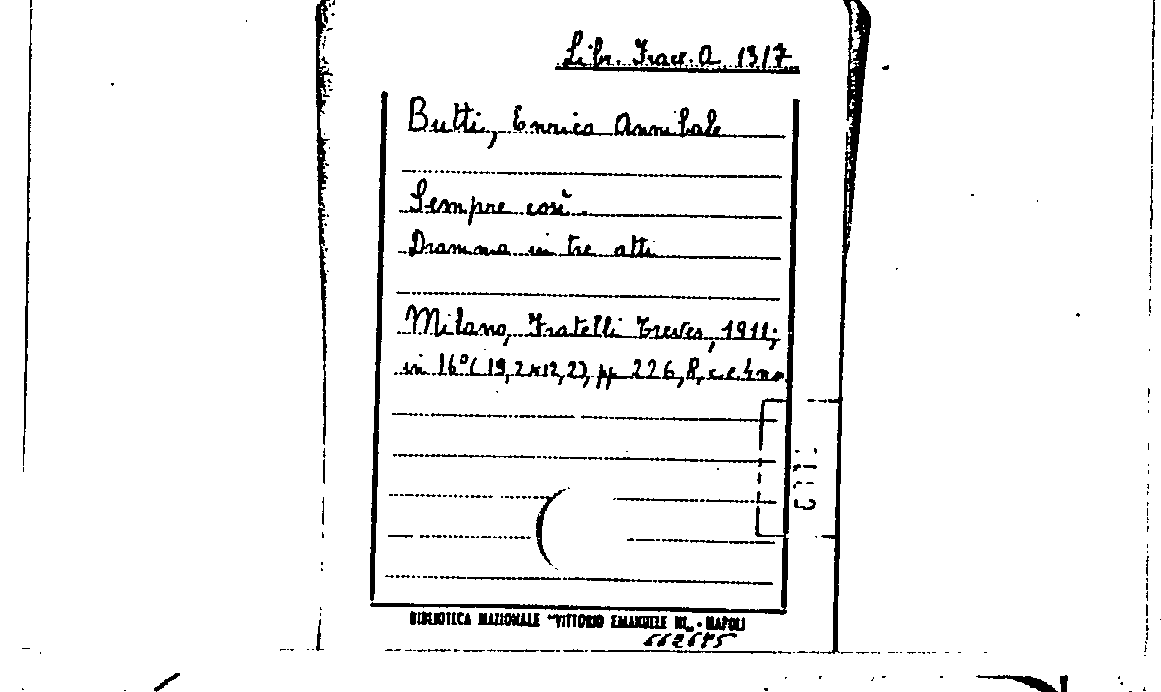 Libr. Trav. A. 1317
Butti, Enrico Annibale
Sempre così.
Dramma in tre atti
Milano, Fratelli Treves, 1911;
in 16° (19,2x12,2), pp 226,
BIBLIOTECA NAZIONALE "VITTORIO EMANUELE III" - NAPOLI
662675